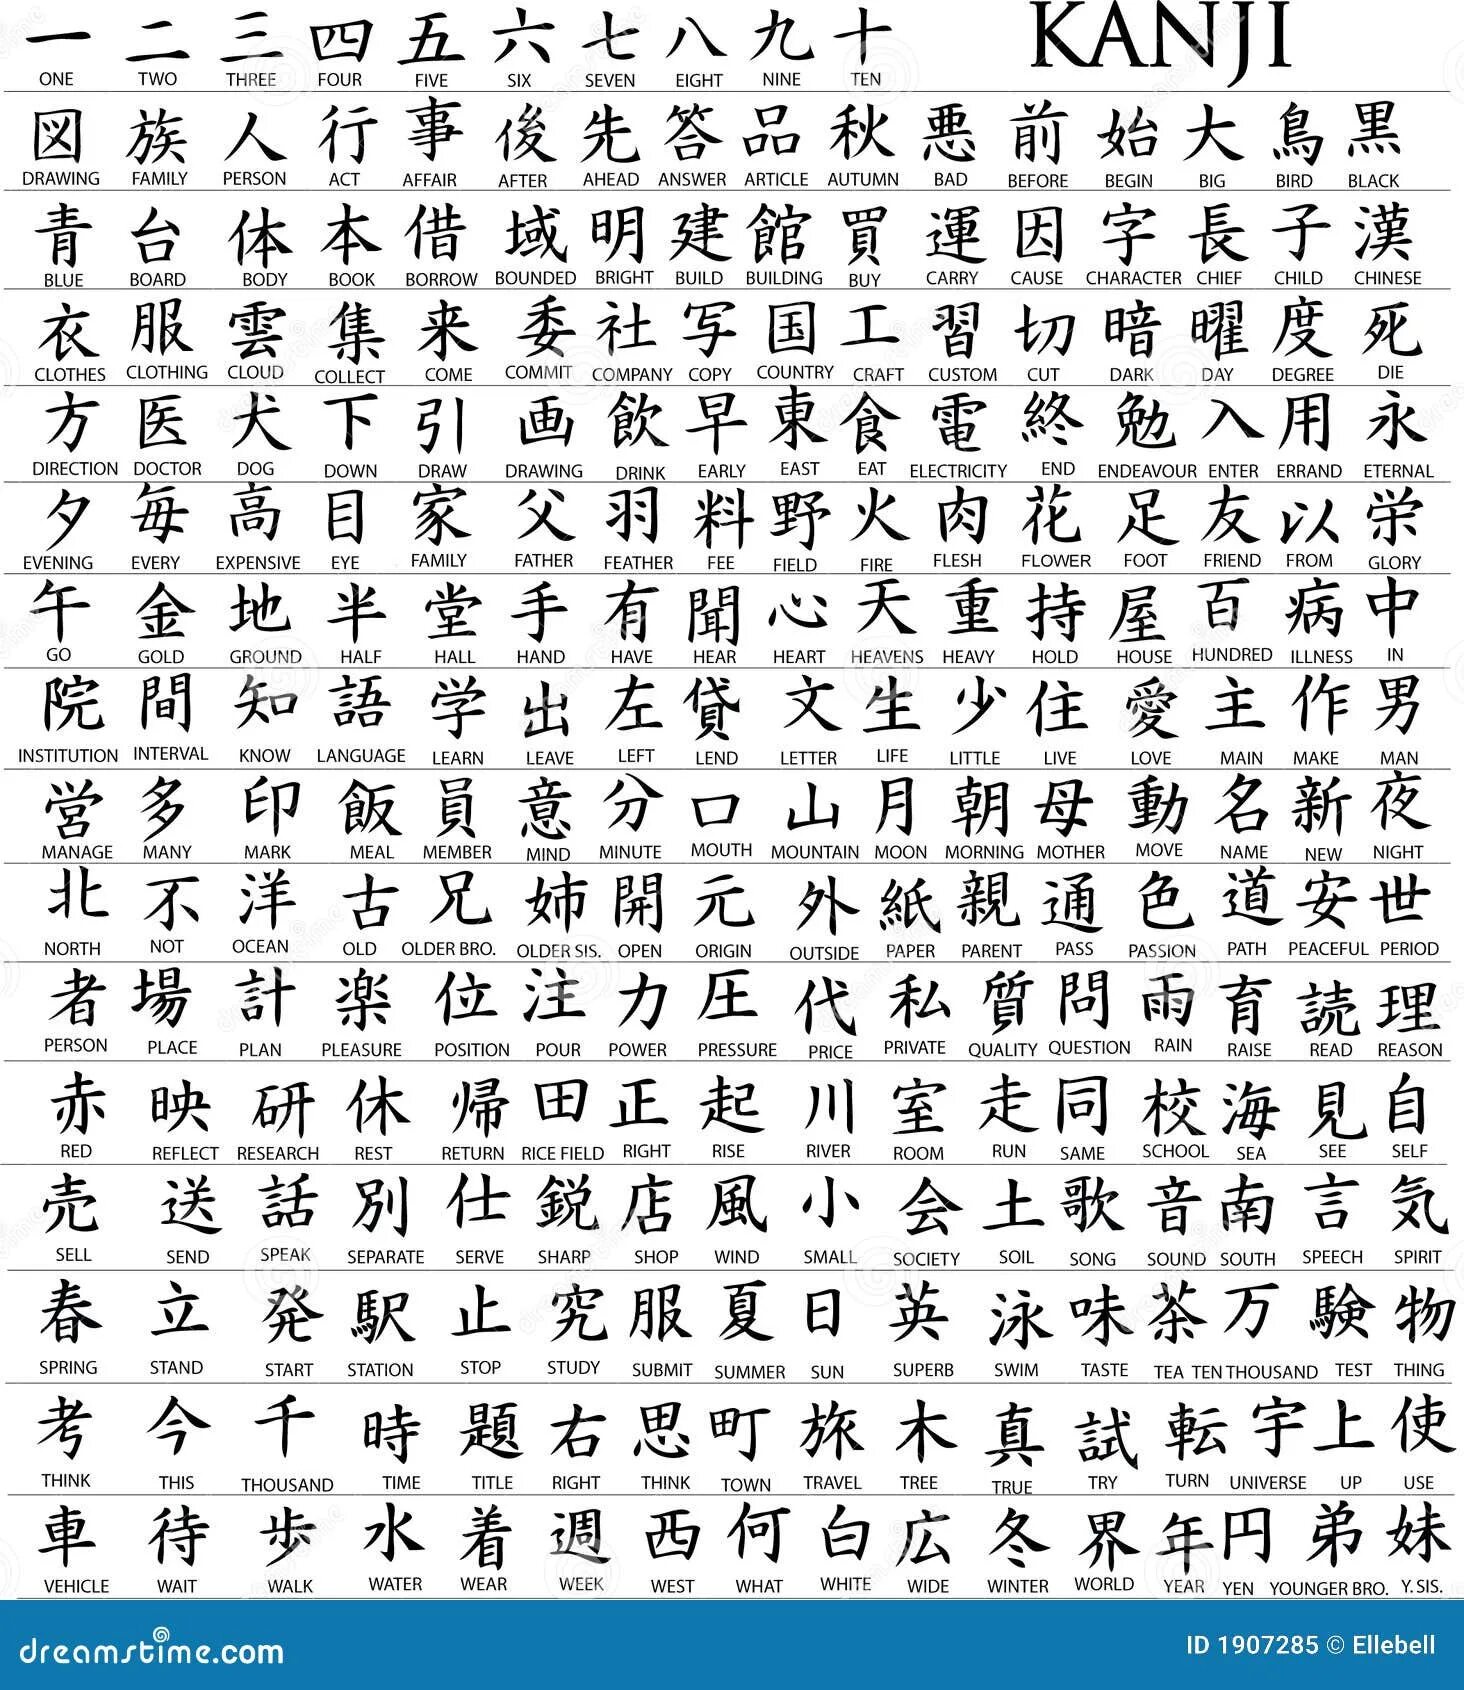 一 二 三 四 五 六 七 八 九 十 KANJI
ONE TWO THREE FOUR FIVE SIX SEVEN EIGHT NINE TEN
図 族 人 行 事 後 先 答 品 秋 悪 前 始 大 鳥 黒
DRAWING FAMILY PERSON ACT AFFAIR AFTER AHEAD ANSWER ARTICLE AUTUMN BAD BEFORE BEGIN BIG BIRD BLACK
青 台 体 本 借 域 明 建 館 買 運 因 字 長 子 漢
BLUE BOARD BODY BOOK BORROW BOUNDED BRIGHT BUILD BUILDING BUY CARRY CAUSE CHARACTER CHIEF CHILD CHINESE
衣 服 雲 集 来 委 社 写 国 工 習 切 暗 曜 度 死
CLOTHES CLOTHING CLOUD COLLECT COME COMMIT COMPANY COPY COUNTRY CRAFT CUSTOM CUT DARK DAY DEGREE DIE
方 医 犬 下 引 画 飲 早 東 食 電 終 勉 入 用 永
DIRECTION DOCTOR DOG DOWN DRAW DRAWING DRINK EARLY EAST EAT ELECTRICITY END ENDEAVOUR ENTER ERRAND ETERNAL
夕 毎 高 目 家 父 羽 料 野 火 肉 花 足 友 以 栄
EVENING EVERY EXPENSIVE EYE FAMILY FATHER FEATHER FEE FIELD FIRE FLESH FLOWER FOOT FRIEND FROM GLORY
午 金 地 半 堂 手 有 聞 心 天 重 持 屋 百 病 中
GO GOLD GROUND HALF HALL HAND HAVE HEAR HEART HEAVENS HEAVY HOLD HOUSE HUNDRED ILLNESS IN
院 間 知 語 学 出 左 貸 文 生 少 住 愛 主 作 男
INSTITUTION INTERVAL KNOW LANGUAGE LEARN LEAVE LEFT LEND LETTER LIFE LITTLE LIVE LOVE MAIN MAKE MAN
営 多 印 飯 員 意 分 口 山 月 朝 母 動 名 新 夜
MANAGE MANY MARK MEAL MEMBER MIND MINUTE MOUTH MOUNTAIN MOON MORNING MOTHER MOVE NAME NEW NIGHT
北 不 洋 古 兄 姉 開 元 外 紙 親 通 色 道 安 世
NORTH NOT OCEAN OLD OLDER BRO. OLDER SIS. OPEN ORIGIN OUTSIDE PAPER PARENT PASS PASSION PATH PEACEFUL PERIOD
者 場 計 楽 位 注 力 圧 代 私 質 問 雨 育 読 理
PERSON PLACE PLAN PLEASURE POSITION POUR POWER PRESSURE PRICE PRIVATE QUALITY QUESTION RAIN RAISE READ REASON
赤 映 研 休 帰 田 正 起 川 室 走 同 校 海 見 自
RED REFLECT RESEARCH REST RETURN RICE FIELD RIGHT RISE RIVER ROOM RUN SAME SCHOOL SEA SEE SELF
売 送 話 別 仕 鋭 店 風 小 会 土 歌 音 南 言 気
SELL SEND SPEAK SEPARATE SERVE SHARP SHOP WIND SMALL SOCIETY SOIL SONG SOUND SOUTH SPEECH SPIRIT
春 立 発 駅 止 究 服 夏 日 英 泳 味 茶 万 験 物
SPRING STAND START STATION STOP STUDY SUBMIT SUMMER SUN SUPERB SWIM TASTE TEA TEN THOUSAND TEST THING
考 今 千 時 題 右 思 町 旅 木 真 試 転 宇 上 使
THINK THIS THOUSAND TIME TITLE RIGHT THINK TOWN TRAVEL TREE TRUE TRY TURN UNIVERSE UP USE
車 待 歩 水 着 週 西 何 白 広 冬 界 年 円 弟 妹
VEHICLE WAIT WALK WATER WEAR WEEK WEST WHAT WHITE WIDE WINTER WORLD YEAR YEN YOUNGER BRO. Y. SIS.
dreamstime.com ID 1907285 © Ellebell